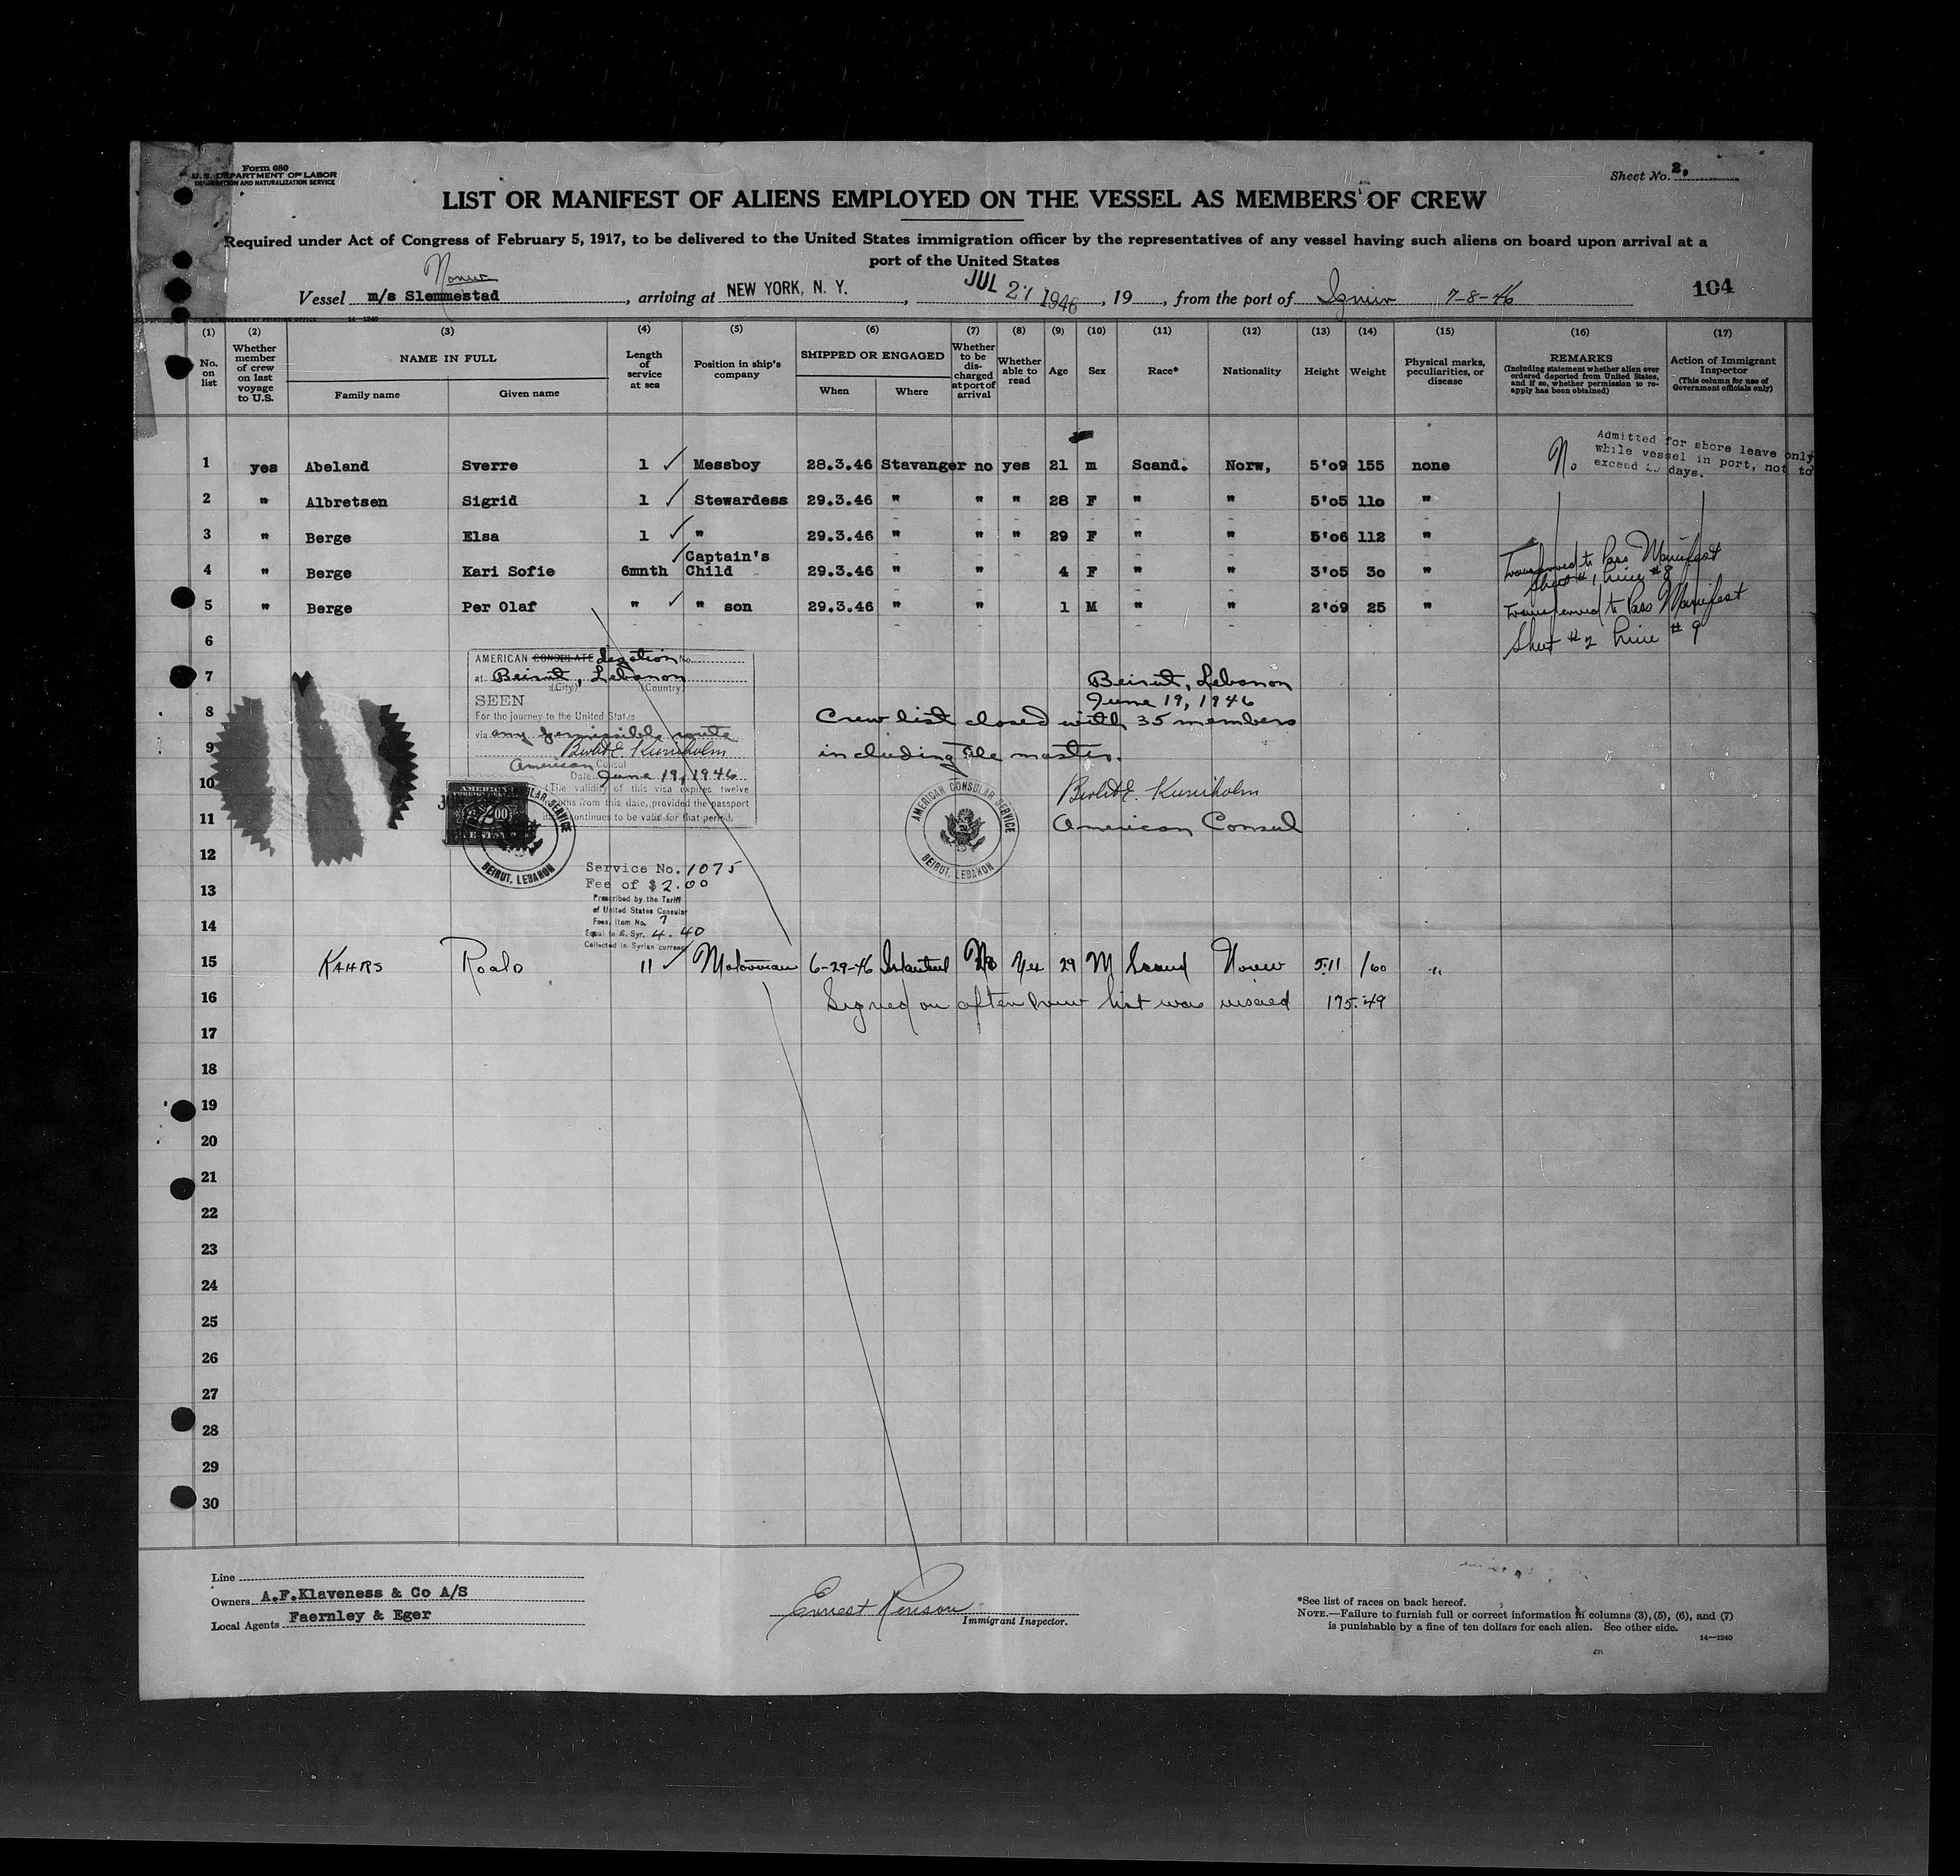 Form 680
U. S. DEPARTMENT OF LABOR
IMMIGRATION AND NATURALIZATION SERVICE
Sheet No. 2.
LIST OR MANIFEST OF ALIENS EMPLOYED ON THE VESSEL AS MEMBERS OF CREW
Required under Act of Congress of February 5, 1917, to be delivered to the United States immigration officer by the representatives of any vessel having such aliens on board upon arrival at a
port of the United States
Vessel m/s Slemmestad, arriving at NEW YORK, N. Y., JUL 27 1946, 19, from the port of Izmir 7-8-46
104
(1) (2) (3) (4) (5) (6) (7) (8) (9) (10) (11) (12) (13) (14) (15) (16) (17)
No. on list
Whether member of crew on last voyage to U.S.
NAME IN FULL
Family name
Given name
Length of service at sea
Position in ship's company
SHIPPED OR ENGAGED
When
Where
Whether to be discharged at port of arrival
Whether able to read
Age
Sex
Race*
Nationality
Height
Weight
Physical marks, peculiarities, or disease
REMARKS
(Including statement whether alien ever ordered deported from United States, and if so, whether permission to reapply has been obtained)
Action of Immigrant Inspector
(This column for use of Government officials only)
1 yes Abeland Sverre 1 ✓ Messboy 28.3.46 Stavanger no yes 21 m Scand. Norw, 5'09 155 none No
Admitted for shore leave only
while vessel in port, not to
exceed days.
2 " Albretsen Sigrid 1 ✓ Stewardess 29.3.46 " " " 28 F " " 5'05 110 "
3 " Berge Elsa 1 ✓ " 29.3.46 " " " 29 F " " 5'06 112 "
4 " Berge Kari Sofie 6mnth ✓ Captain's Child 29.3.46 " " 4 F " " 3'05 30 "
Transferred to Pass Manifest
Sheet #1, Line #8
5 " Berge Per Olaf " ✓ " son 29.3.46 " " 1 M " " 2'09 25 "
Transferred to Pass Manifest
Sheet #2 Line #9
6
7
8
9
10
11
12
13
14
AMERICAN CONSULATE Legation No.
at Beirut, Lebanon
(City) (Country)
SEEN
For the journey to the United States
via any permissible route
Bertel E. Kuniholm
American Consul
Date June 19, 1946
(The validity of this visa expires twelve
months from this date, provided the passport
continues to be valid for that period.
AMERICAN CONSULAR SERVICE
BEIRUT, LEBANON
Service No. 1075
Fee of $ 2.00
Prescribed by the Tariff
of United States Consular
Fees, Item No. 7
Equal to £. Syr. 4.40
Collected in Syrian currency
Beirut, Lebanon
June 19, 1946
Crew list closed with 35 members
including the master.
Bertel E. Kuniholm
American Consul
AMERICAN CONSULAR SERVICE
BEIRUT, LEBANON
15 KAHRS Roald 11 ✓ Motorman 6-29-46 Istanbul No Yes 29 M Scand Norw 5.11 160 "
16 Signed on after crew list was visaed 175.49
17
18
19
20
21
22
23
24
25
26
27
28
29
30
Line
Owners A.F.Klaveness & Co A/S
Local Agents Faernley & Eger
Ernest Renson
Immigrant Inspector.
*See list of races on back hereof.
NOTE.—Failure to furnish full or correct information in columns (3), (5), (6), and (7)
is punishable by a fine of ten dollars for each alien. See other side.
14—1240